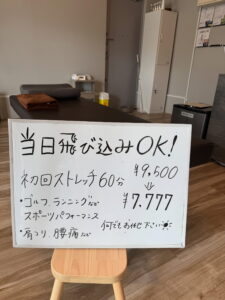 当日飛び込みOK!
初回ストレッチ60分 ¥9,500
⇓
¥7.777
・ゴルフ、ランニングなど
スポーツパフォーマンス
・肩こり、腰痛など
何でもお任せ下さい